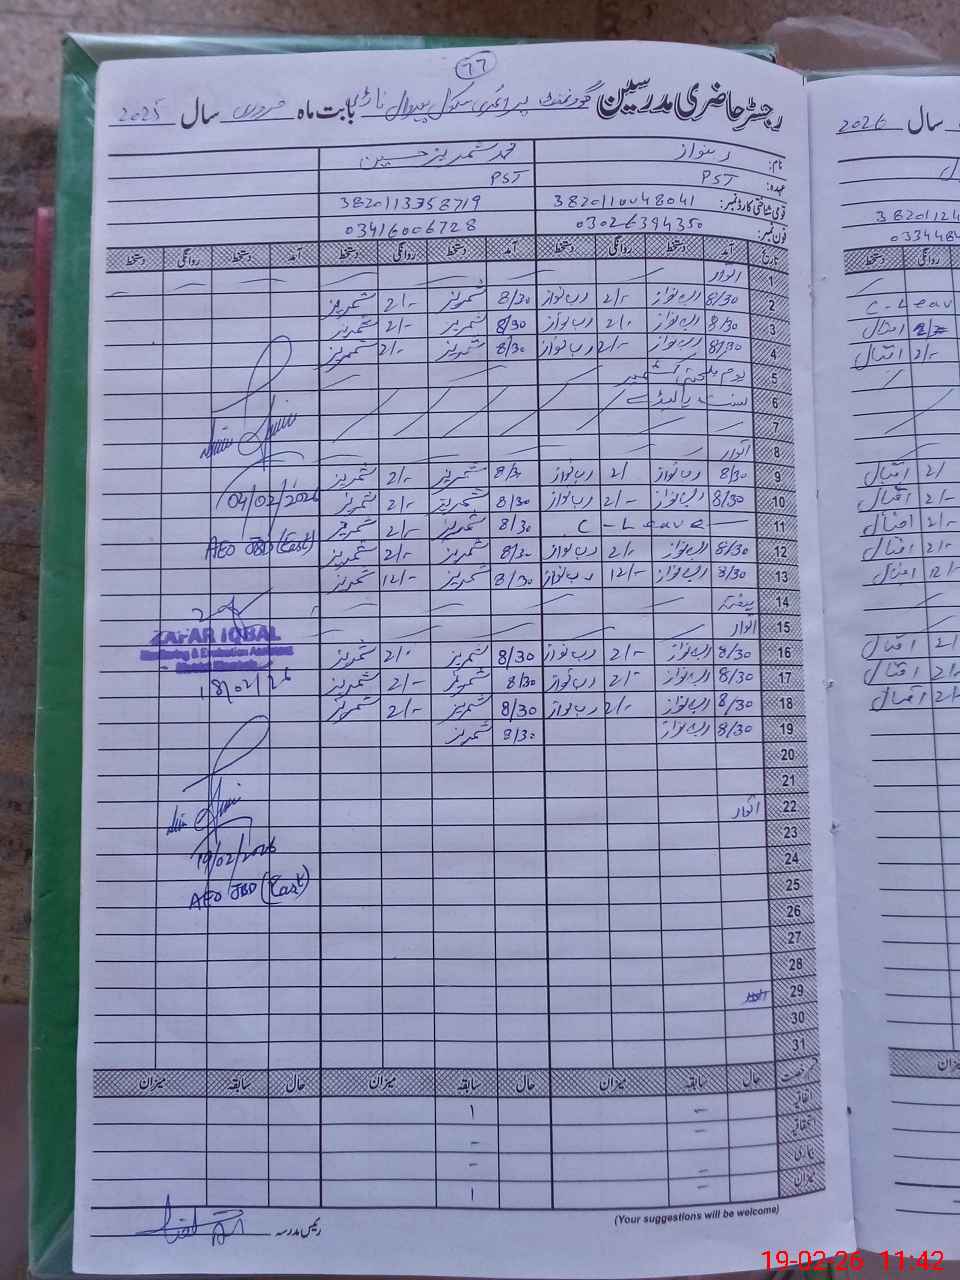 77
رجسٹر حاضری مدرسین گورنمنٹ پرائمری سکول بابت ماہ فروری سال 2025
نام: رب نواز محمد شمریز حسین
عہدہ: PST PST
قومی شناختی کارڈ نمبر: 3820110048041 3820113358719
فون نمبر: 03026394350 03416006728
تاریخ آمد دستخط روانگی دستخط آمد دستخط روانگی دستخط آمد دستخط روانگی دستخط
1 اتوار
2 8/30 رب نواز 2/- رب نواز 8/30 شمریز 2/- شمریز
3 8/30 رب نواز 2/- رب نواز 8/30 شمریز 2/- شمریز
4 8/30 رب نواز 2/- رب نواز 8/30 شمریز 2/- شمریز
5 یوم یکجہتی کشمیر
6
7
8 اتوار
9 8/30 رب نواز 2/ رب نواز 8/30 شمریز 2/- شمریز
10 8/30 رب نواز 2/- رب نواز 8/30 شمریز 2/- شمریز
11 C-Leave 8/30 شمریز 2/- شمریز
12 8/30 رب نواز 2/- رب نواز 8/30 شمریز 2/- شمریز
13 8/30 رب نواز 12/- رب نواز 8/30 شمریز 12/- شمریز
14 ہفتہ
15 اتوار
16 8/30 رب نواز 2/- رب نواز 8/30 شمریز 2/- شمریز
17 8/30 رب نواز 2/- رب نواز 8/30 شمریز 2/- شمریز
18 8/30 رب نواز 2/- رب نواز 8/30 شمریز 2/- شمریز
19 8/30 رب نواز 8/30 شمریز
20
21
22 اتوار
23
24
25
26
27
28
29
30
31
04/02/2026
AEO JBD (East)
ZAFAR IQBAL
Monitoring & Evaluation Assistant
18/02/26
19/02/2026
AEO JBD (East)
رخصت حال سابقہ میزان حال سابقہ میزان حال سابقہ میزان
اتفاقیہ - ۱
استحقاقیہ -
بیماری - -
میزان - ۱
رئیس مدرسہ
(Your suggestions will be welcome)
سال 2026
3820124
033448
روانگی دستخط
C-Leave
2/- اقبال
2/- اقبال
2/ اقبال
2/- اقبال
2/- اقبال
2/- اقبال
12/- اقبال
2/ اقبال
2/- اقبال
2/- اقبال
19-02-26 11:42